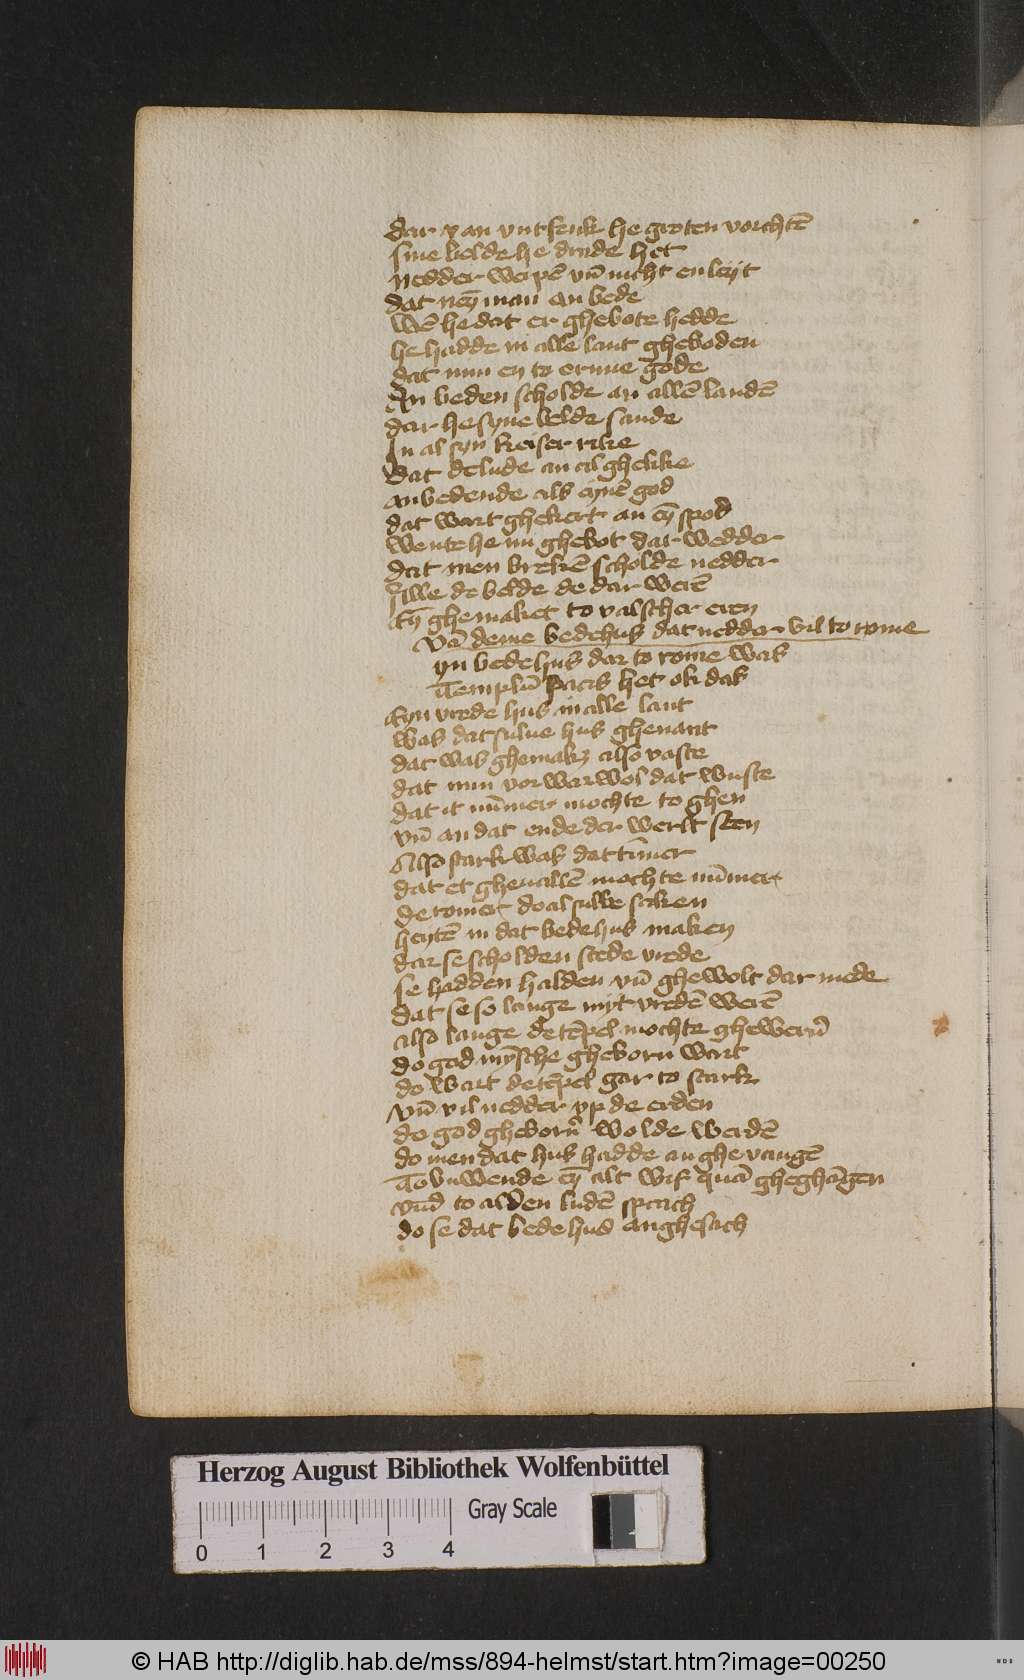 dar van vntfenk he groten vorchtē
sine belde he drade het
nedder werpē vn̄ nicht en leyt
dat neȳ man an bede
wē he dat er ghebote hedde
he hadde in alle lant gheboden
dat mm en to erme gode
An beden scholde an allē landē
dar he syne belde sande
In al syn keiser rike
Dat de lude an al ghelike
anbedende als eynē god
dat wart ghekert an eȳ spod
wente he nu ghebot dar wedder
dat men brekē scholde nedder
Alle de belde de dar werē
Eȳ ghemaket to valscher eren
Vā deme bedehus dat nedder vil to rome
yn bedehus dar to rome was
Templū pacis het ok das
Eyn vrede hus in alle lant
was dat sulue hus ghenant
dat was ghemakꝫ also vaste
dat mm vor war wol dat wuste
dat it nūmer mochte to ghen
vn̄ an dat ende der werlt sten
Also stark was dat tīmer
dat et gheuallē mochte nūmer
de romer do al sulke saken
heytē in dat bedehus maken
dar se scholden stede vrede
se hadden halden vn̄ ghewolt dar mede
dat se so lange myt vredē werē
also lange de tēpel mochte ghewern̄
do god mȳsche gheborn wart
do wart de tēpel gar to stark
vn̄ vil nedder vp de erden
do god gheborn̄ wolde werdē
do men dat hus hadde an ghe vangē
To buwende eȳ alt wif quā gheghāngen
vnd to alden ludē sprach
do se dat bedehus anghesach
Herzog August Bibliothek Wolfenbüttel
Gray Scale
0 1 2 3 4
© HAB http://diglib.hab.de/mss/894-helmst/start.htm?image=00250